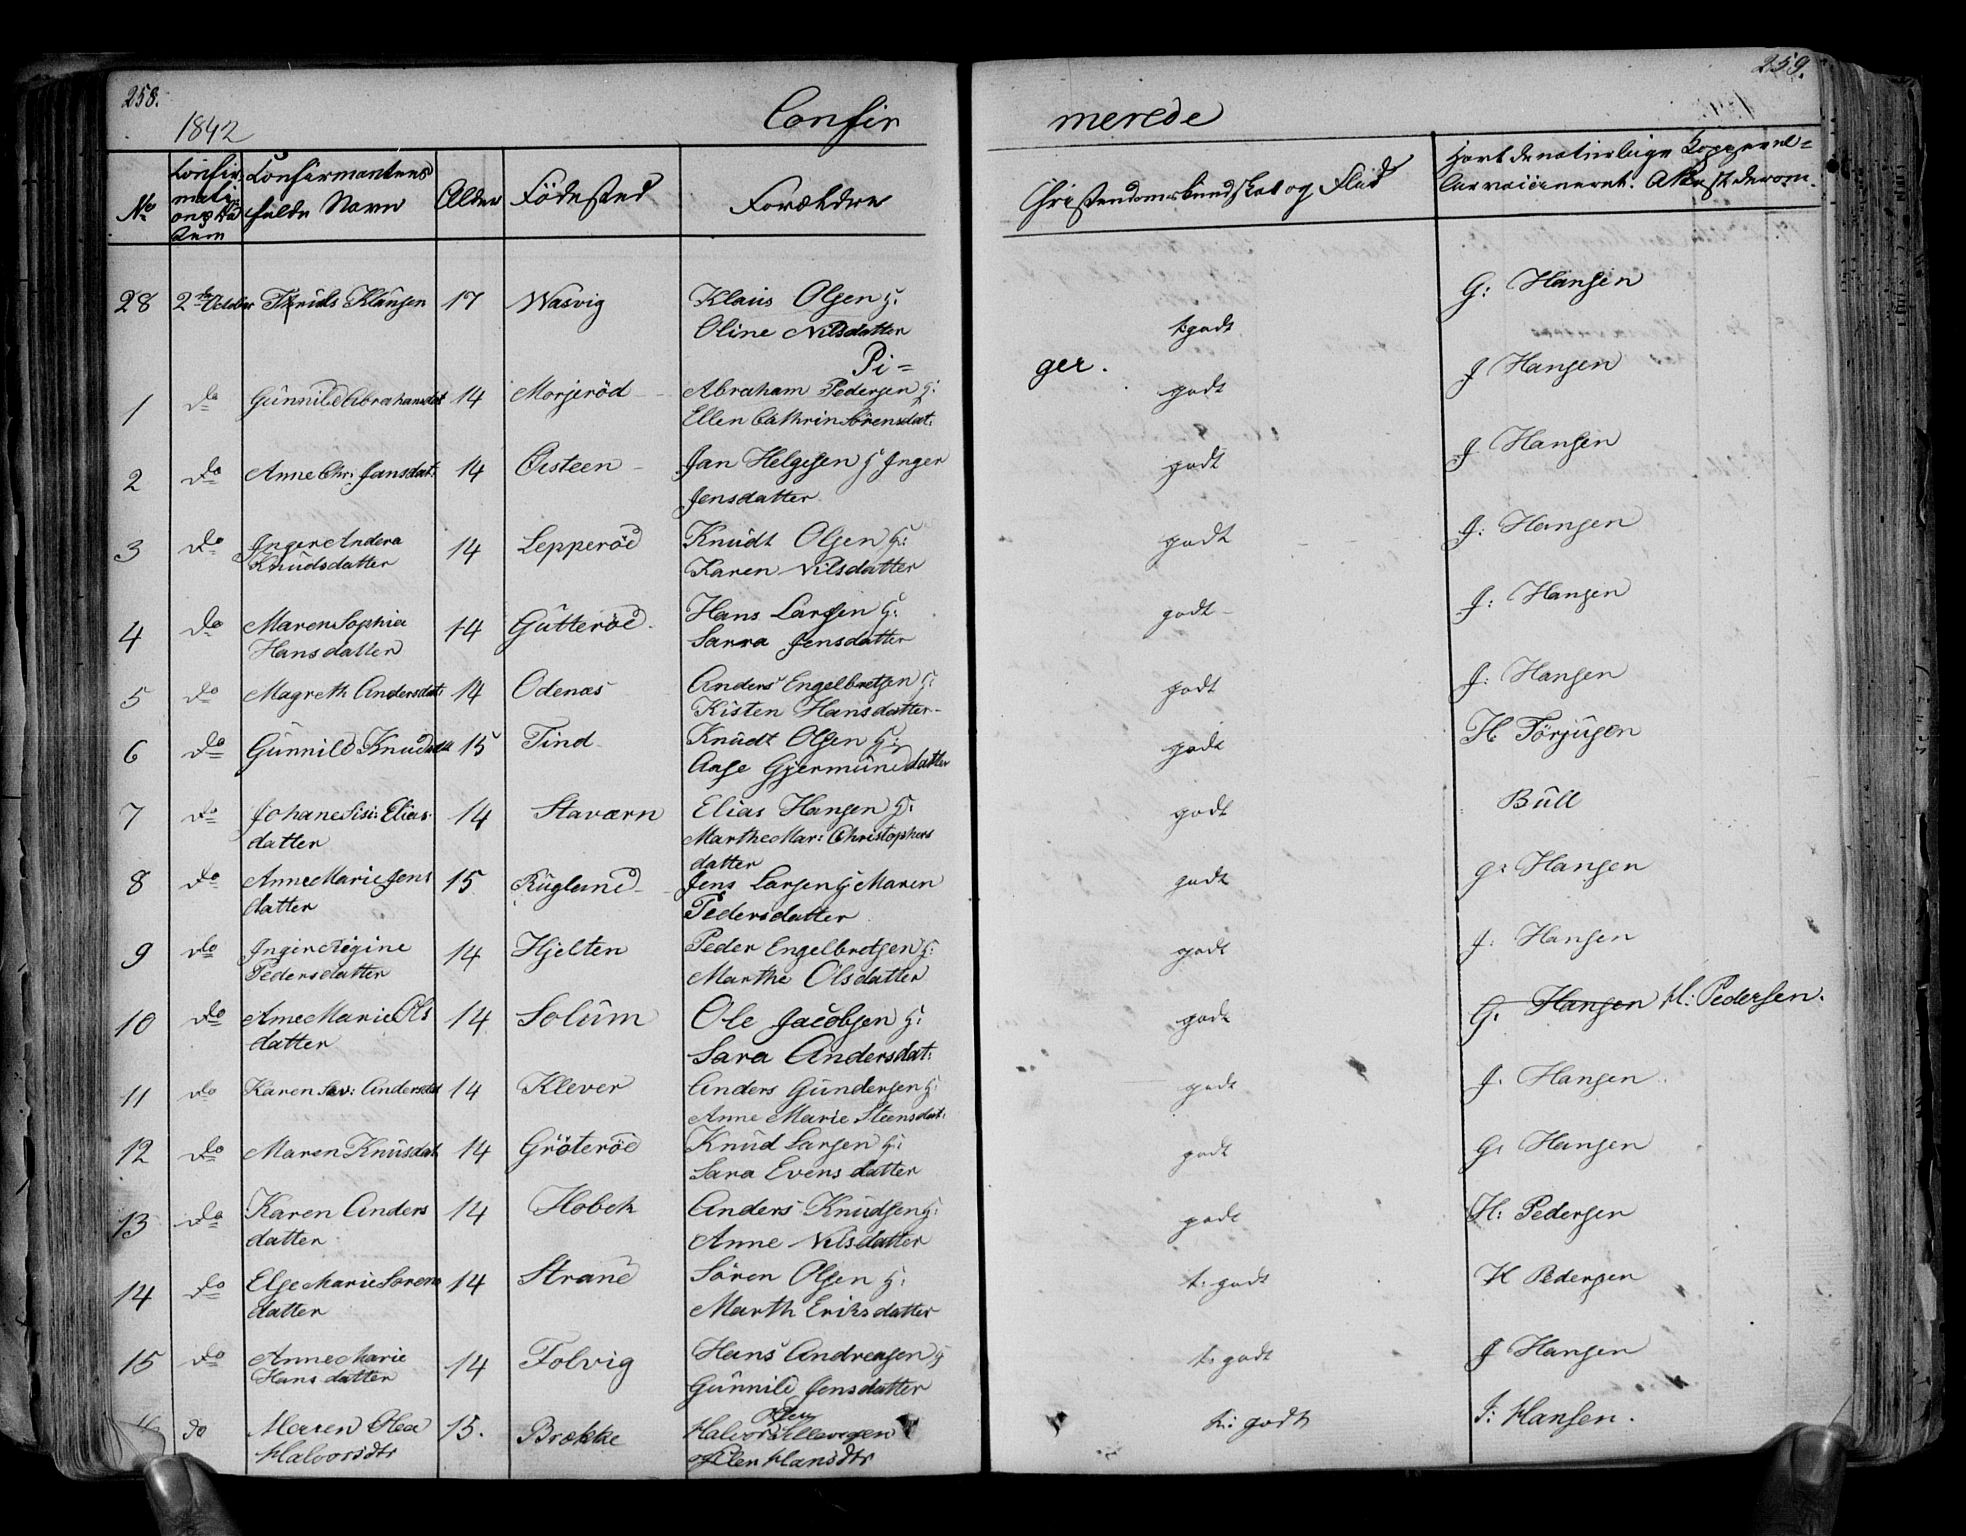 258.
259.
1842
Confir
merede
No
Confir-
mati-
ons Da
tum
Confirmantens
fulde Navn
Alder
Födested
Forældre
Christendomskundskab og Flid
Havt de naturlige Koppe eel=
ler vaccineret. Attest derom.
28 2den October Klausen 17 Wasvig Klaus Olsen &:
Oline Nilsdatter
t: godt G: Hansen
Pi=
ger.
1 do Gunnild Abrahamsdat 14 Morjeröd Abraham Pedersen &:
Ellen Cathrin Sörensdat:
godt J Hansen
2 do Anne Chr: Jansdat: 14 Oesteen Jan Helgesen & Inger
Jensdatter
godt J Hansen
3 do Inger Andera
Knudsdatter
14 Lepperöd Knudt Olsen &:
Karen Nilsdatter
godt J: Hansen
4 do Maren Sophia
Hansdatter
14 Gutteröd Hans Larsen &:
Sarra Jensdatter
godt J: Hansen
5 do Magreth Andersdat: 14 Odenæs Anders Engelbretsen &:
Kisten Hansdatter
godt J: Hansen
6 do Gunnild Knudsdat 15 Tind Knudt Olsen &:
Aase Gjermundsdatter
godt H Törjusen
7 do Johane Sisi: Elias
datter
14 Staværn Elias Hansen &:
Marthe Mar: Christophers
datter
godt Bull
8 do Anne Marie Jens
datter
15 Rugland Jens Larsen & Maren
Pedersdatter
godt G: Hansen
9 do Inger Regine
Pedersdatter
14 Hjelten Peder Engelbretsen &:
Marthe Olsdatter
godt J: Hansen
10 do Anne Marie Ols
datter
14 Solum Ole Jacobsen &:
Sara Andersdat:
godt G. Hansen H: Pedersen.
11 do Karen Sev: Andersdat 14 Klever Anders Gundersen &:
Anne Marie Steensdat:
godt J. Hansen
12 do Maren Knusdat 14 Gröteröd Knud Larsen &:
Sara Evensdatter
godt G: Hansen
13 do Karen Anders
datter
14 Hobek Anders Knudsen &:
Anne Nilsdatter
godt H: Pedersen
14 do Else Marie Sorens
datter
14 Strand Sören Olsen &:
Marth Eriksdatter
t: godt H Pedersen
15 do Anne Marie
Hansdatter
14 Folvig Hans Andreasen &
Gunnild Jensdatter
t: godt J Hansen
do Maren Thea
Halvorsdtr
15. Brække Halvor
og Elen Hansdtr
t: godt J: Hansen.